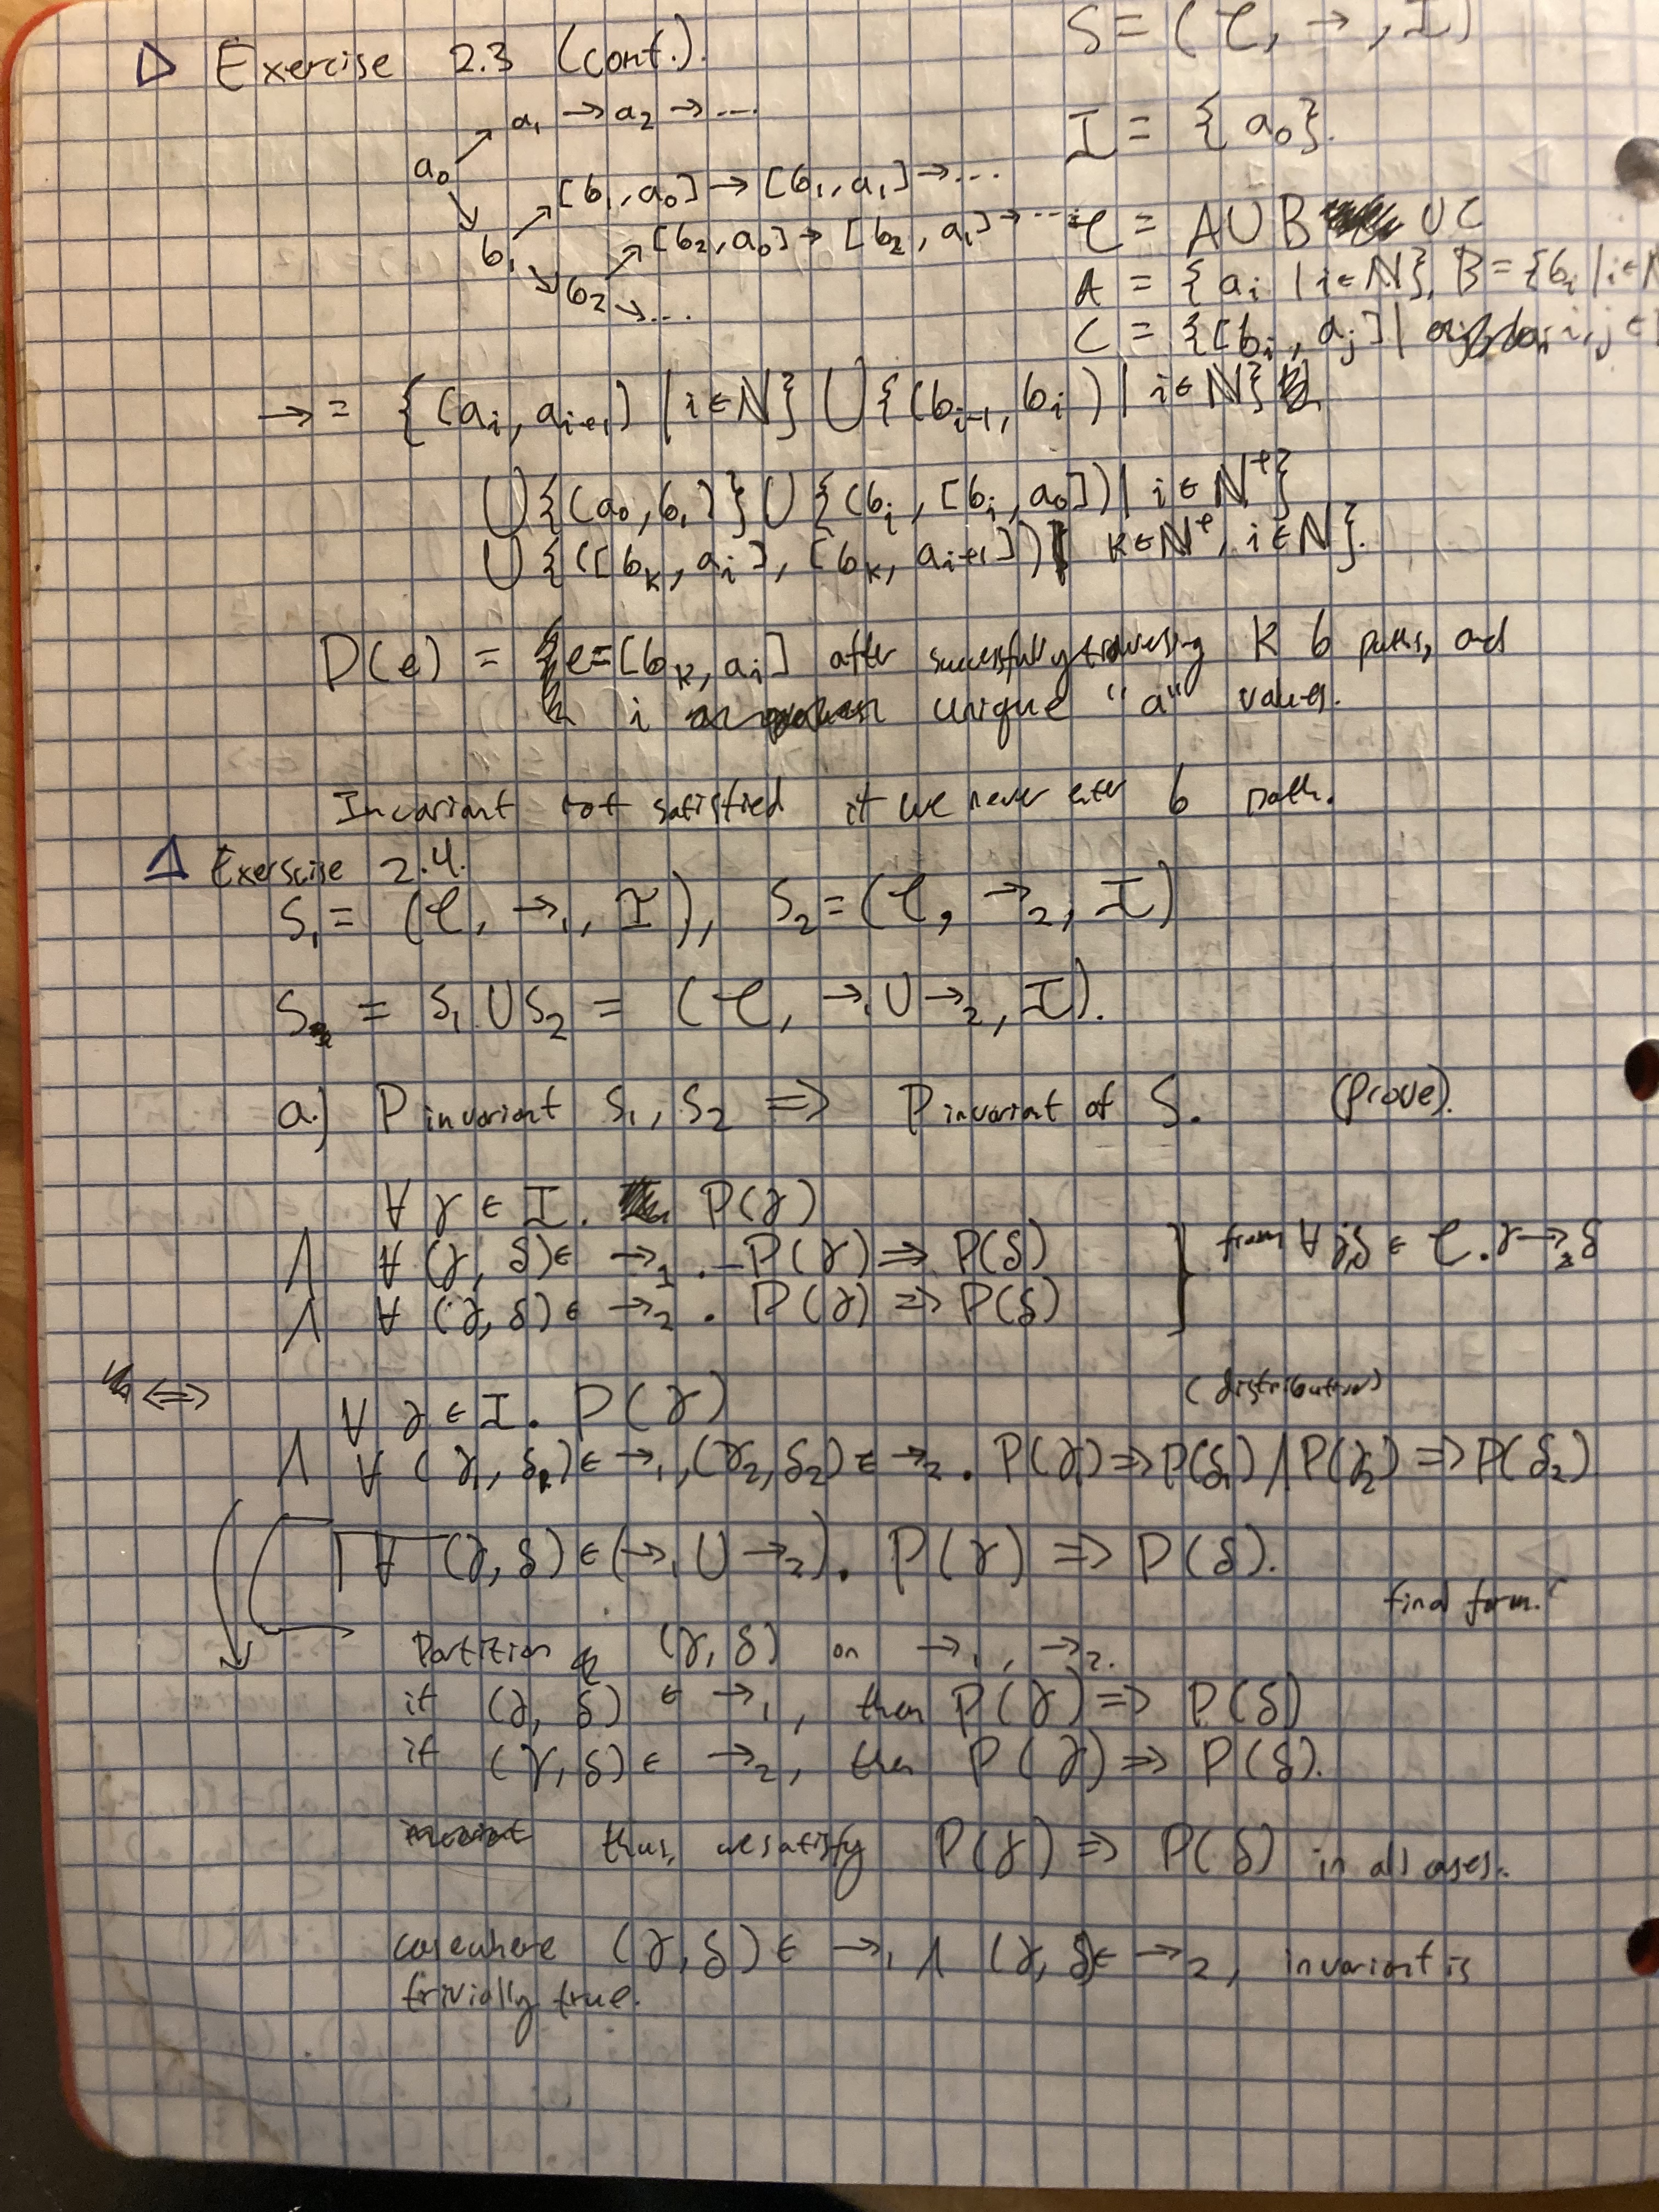 ▷ Exercise 2.3 (cont.).
S = (C, →, I)
a₁ → a₂ → ...
I = {a₀}.
a₀
[b₁, a₀] → [b₁, a₁] → ...
b₁ [b₂, a₀] → [b₂, a₁] → ...
C = A ∪ B ∪ C
b₂ ...
A = {aᵢ | i ∈ ℕ}, B = {bᵢ | i ∈ ℕ
C = {[bᵢ, aⱼ] | i, j ∈
→ = {(aᵢ, aᵢ₊₁) | i ∈ ℕ} ∪ {(bᵢ₋₁, bᵢ) | i ∈ ℕ}
∪ {(a₀, b₁)} ∪ {(bᵢ, [bᵢ, a₀]) | i ∈ ℕ⁺}
∪ {([bₖ, aᵢ], [bₖ, aᵢ₊₁]) | k ∈ ℕ⁺, i ∈ ℕ}.
P(e) = e = [bₖ, aᵢ] after successfully traversing k b paths, and
i unique "a" values.
Invariant not satisfied if we never enter b path.
△ Exerscise 2.4.
S₁ = (C, →₁, I), S₂ = (C, →₂, I)
S = S₁ ∪ S₂ = (C, →₁ ∪ →₂, I).
a.) P invariant S₁, S₂ ⇒ P invariant of S. (Prove).
∀ γ ∈ I. P(γ)
∧ ∀ (γ, δ) ∈ →₁. P(γ) ⇒ P(δ)
∧ ∀ (γ, δ) ∈ →₂. P(γ) ⇒ P(δ)
} from ∀ γ,δ ∈ C. γ →₂ δ
⇔ ∀ γ ∈ I. P(γ) (distributive)
∧ ∀ (γ₁, δ₁) ∈ →₁, (γ₂, δ₂) ∈ →₂. P(γ₁) ⇒ P(δ₁) ∧ P(γ₂) ⇒ P(δ₂)
∀ (γ, δ) ∈ (→₁ ∪ →₂). P(γ) ⇒ P(δ).
final form.
Partition (γ, δ) on →₁, →₂.
if (γ, δ) ∈ →₁, then P(γ) ⇒ P(δ)
if (γ, δ) ∈ →₂, then P(γ) ⇒ P(δ).
thus, we satisfy P(γ) ⇒ P(δ) in all cases.
case where (γ, δ) ∈ →₁ ∧ (γ, δ) ∈ →₂, invariant is
trivially true.